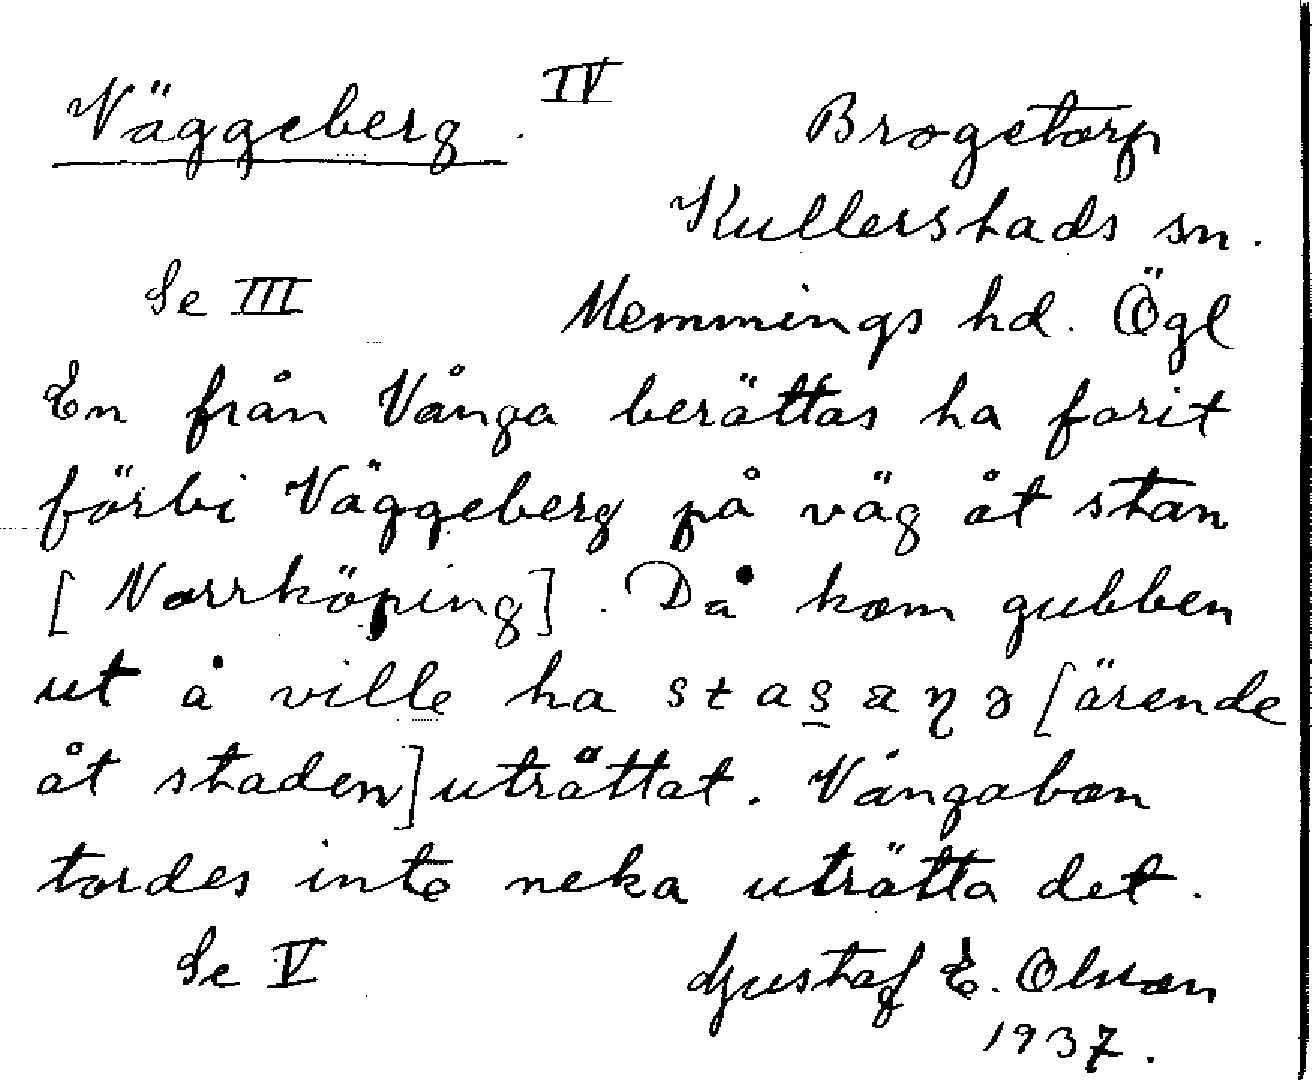 Väggeberg. IV
Brogetorp
Kullerstads sn.
Se III
Memmings hd. Ögl
En från Vånga berättas ha farit
förbi Väggeberg på väg åt stan
[Norrköping]. Då kom gubben
ut å ville ha [ärende
åt staden] uträttat. Vångabon
tordes inte neka uträtta det.
Se V
Gustaf E. Olsson
1937.